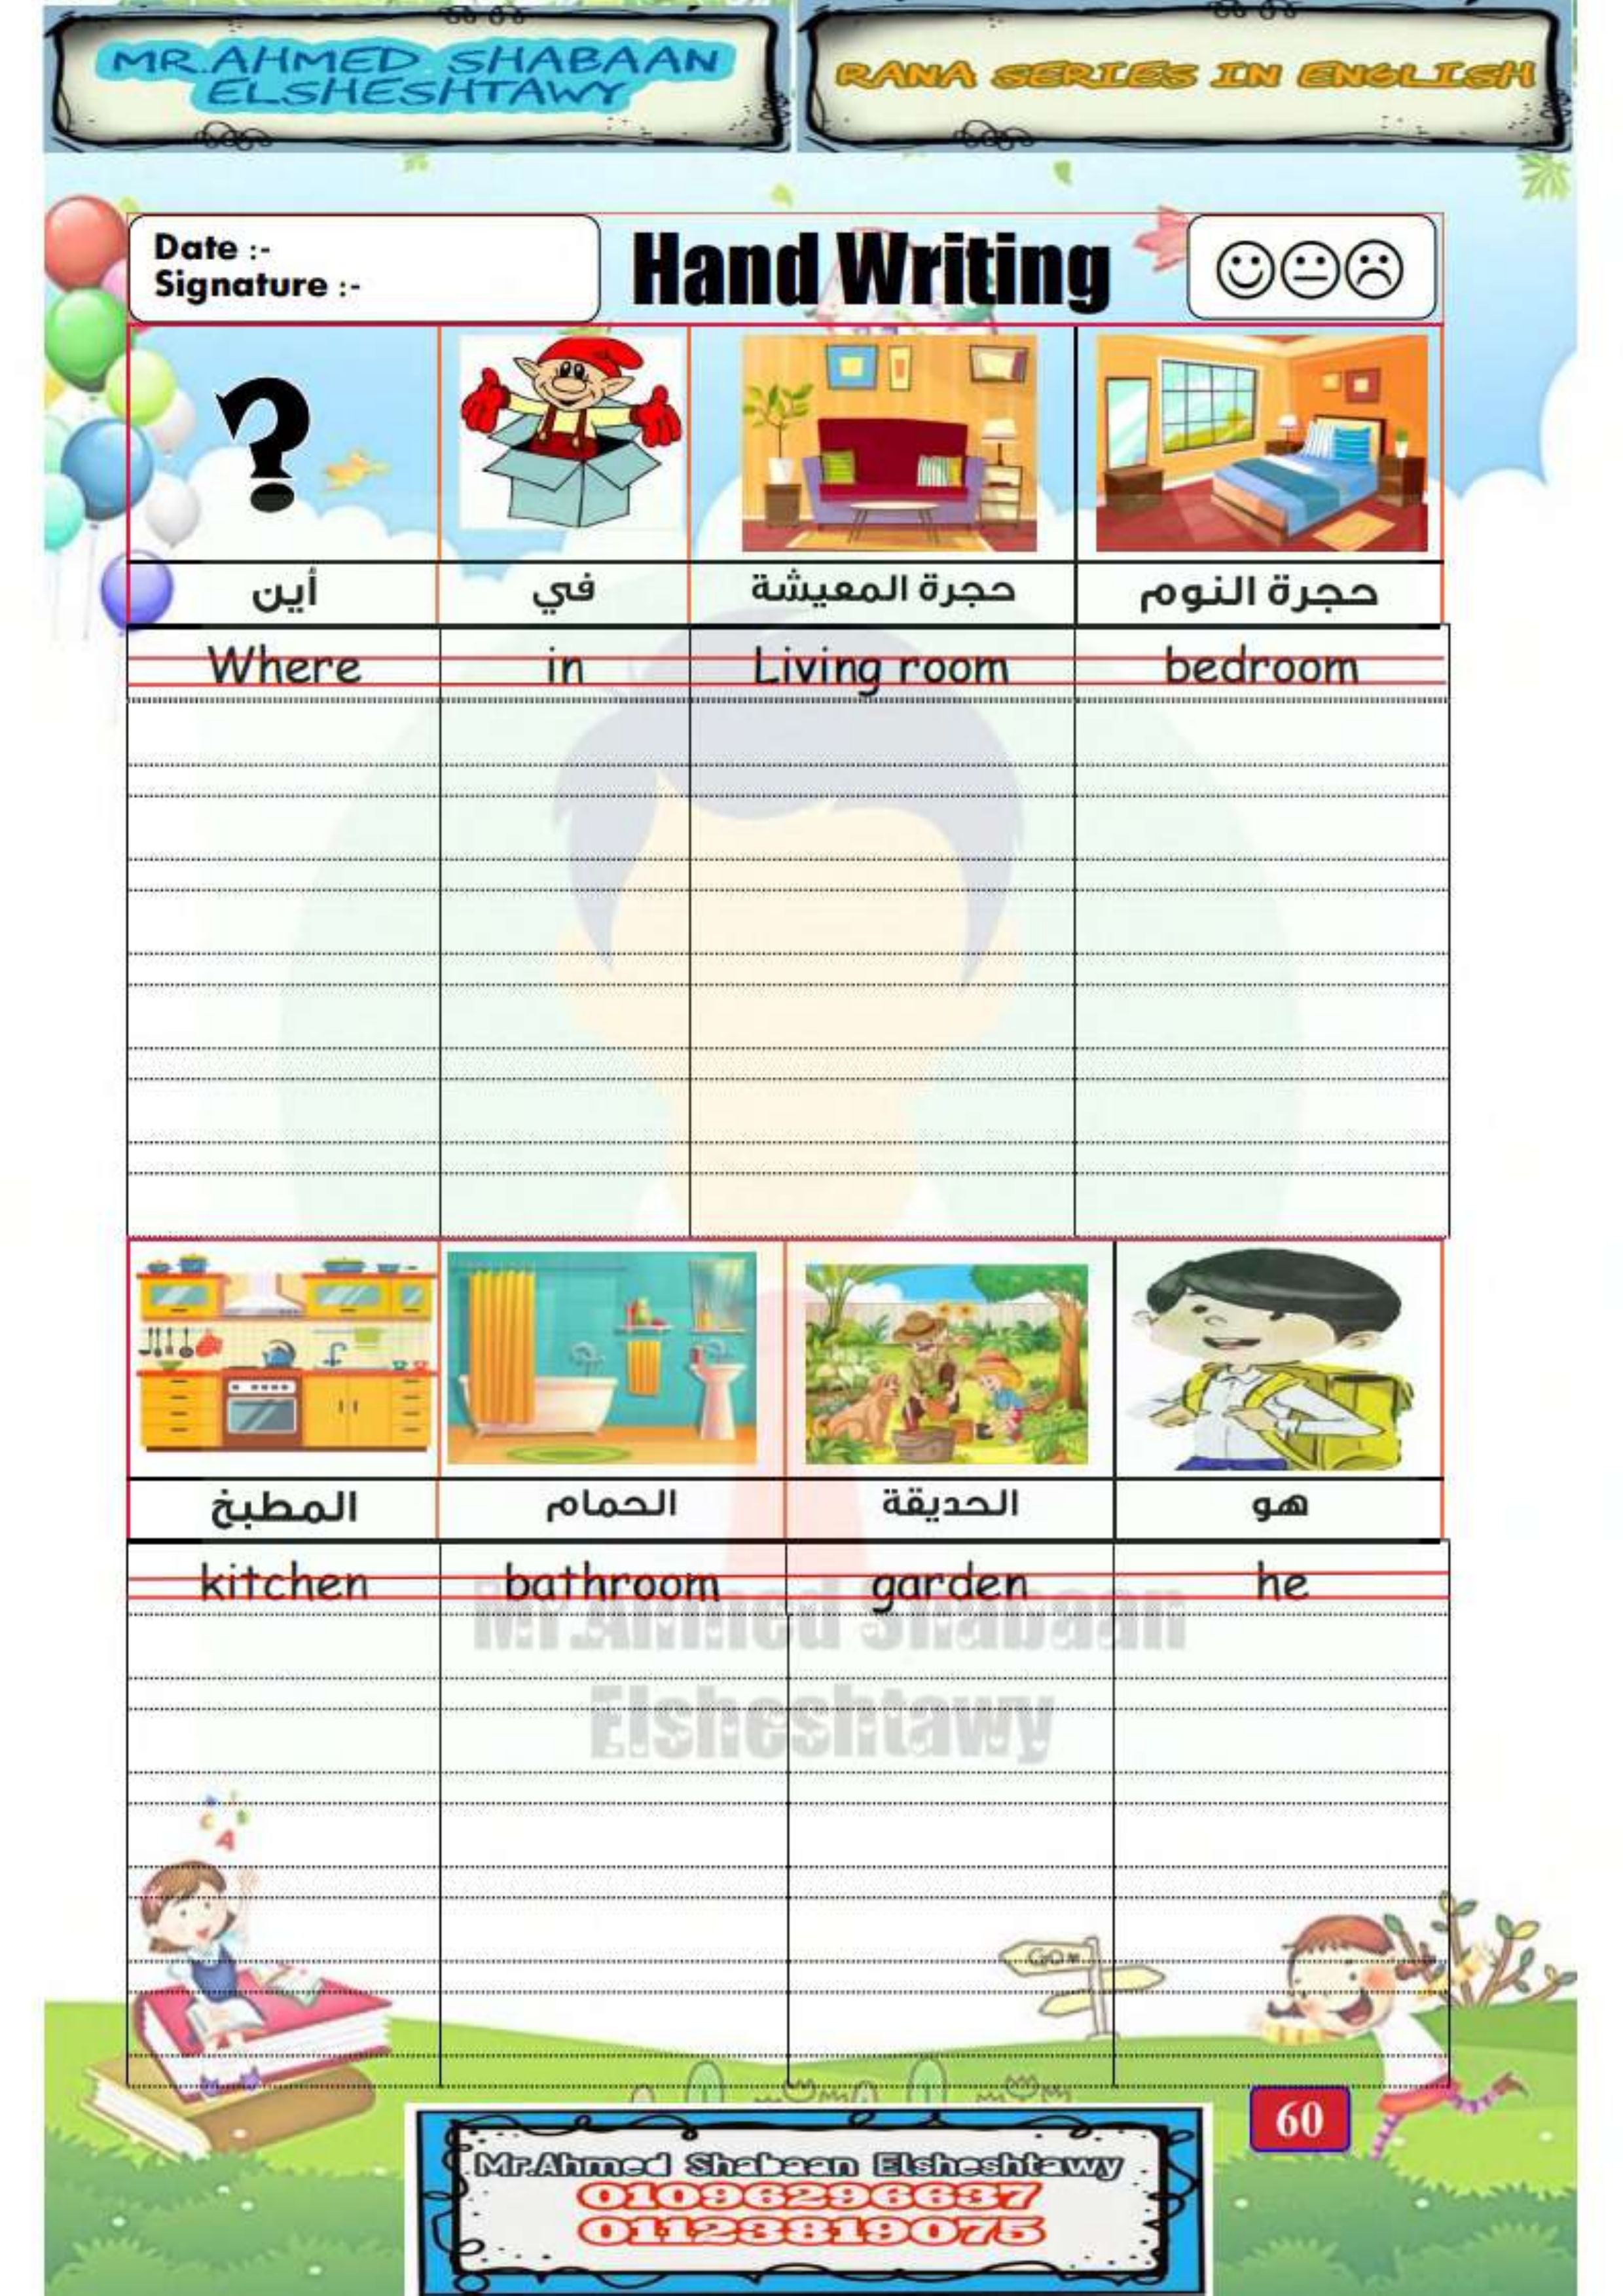 MR.AHMED SHABAAN
ELSHESHTAWY
RANA SERIES IN ENGLISH
Date :-
Signature :-
Hand Writing
أين في حجرة المعيشة حجرة النوم
Where in Living room bedroom
المطبخ الحمام الحديقة هو
kitchen bathroom garden he
Mr.Ahmed Shabaan
Elsheshtawy
60
Mr.Ahmed Shabaan Elsheshtawy
01096296637
01123819075